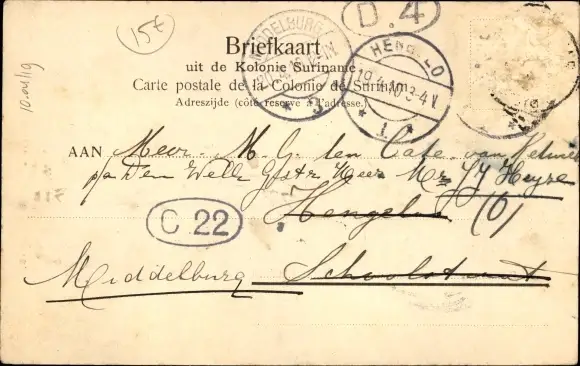 15€
D. 4
MIDDELBURG
HENGELO
19.4.10 3-4 V
* 1 *
10.04.19
Briefkaart
uit de Kolonie Suriname
Carte postale de la Colonie de Surinam
Adreszijde (côté reservé à l'adresse.)
AAN Mevr. M. G. ten Cate van
p/a Den Well Gestr. Heer Mr. J J Heyse
Hengelo (O)
C 22
Middelburg Schoolstraat